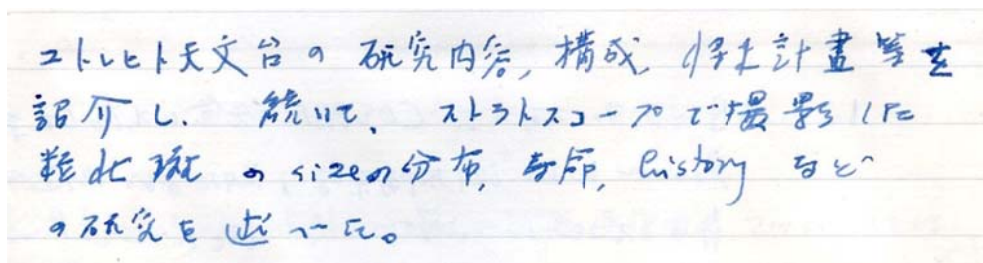 ユトレヒト天文台の研究内容, 構成, 将来計畫等を
紹介し、続いて、ストラトスコープで撮影した
粒状斑のsizeの分布, 寿命, historyなど
の研究を述べた。